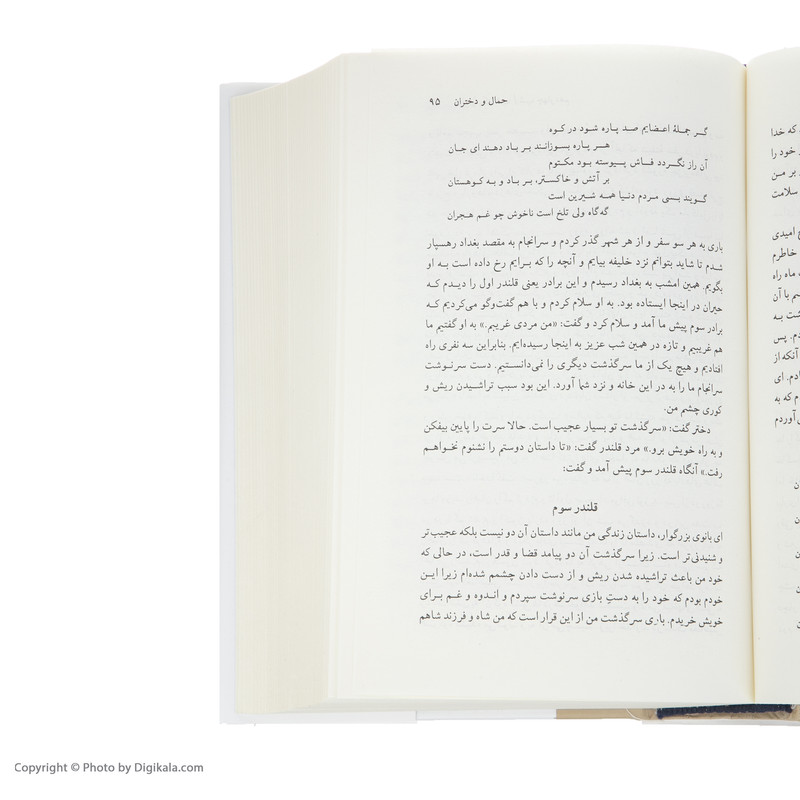 حمال و دختران ۹۵
گـر جملهٔ اعـضایم صـد پـاره شـود در کـوه
هـر پـاره بسـوزانـند بـر بـاد دهـند ای جـان
آن راز نگـردد فـاش پـیوسته بود مکـتوم
بر آتـش و خاکسـتر، بـر بـاد و بـه کـوهستان
گـویند بـسی مـردم دنیـا هـمه شـیرین است
گه‌گاه ولی تلخ است ناخوش چو غـم هـجران
باری به هر سو سفر و از هر شهر گذر کردم و سرانجام به مقصد بغداد رهسپار
شدم تا شاید بتوانم نزد خلیفه بیایم و آنچه را که بـرایم رخ داده است بـه او
بگویم. همین امشب به بغداد رسیدم و این برادر یعنی قلندر اول را دیـدم کـه
حیران در اینجا ایستاده بود. به او سلام کردم و با هم گفت‌وگو می‌کردیم کـه
برادر سوم پیش ما آمد و سلام کرد و گفت: «من مردی غریبم.» به او گفتیم ما
هم غریبیم و تازه در همین شب عزیز به اینجا رسیده‌ایم. بنابراین سه نفری راه
افتادیم و هیچ یک از ما سرگذشت دیگری را نمی‌دانسـتیم. دست سرنـوشت
سرانجام ما را به در این خانه و نزد شما آورد. این بود سبب تراشـیدن ریش و
کوری چشم من.
دختر گفت: «سرگذشت تو بسیار عجیب است. حالا سرت را پایین بیفکن
و به راه خویش برو.» مرد قلندر گفت: «تا داستان دوستم را نشنوم نخـواهـم
رفت.» آنگاه قلندر سوم پیش آمد و گفت:
قلندر سوم
ای بانوی بزرگوار، داستان زندگی من مانند داستان آن دو نیست بلکه عجیب‌تر
و شنیدنی‌تر است. زیرا سرگذشت آن دو پیامد قضا و قدر است، در حالی که
خود من باعث تراشیده شدن ریش و از دست دادن چشمم شده‌ام زیرا ایـن
خودم بودم که خود را به دستِ بازی سرنوشت سپردم و انـدوه و غـم بـرای
خویش خریدم. باری سرگذشت من از این قرار است که من شاه و فرزند شاهم
که خدا
خود را
بر مـن
سلامت
امیدی
خاطرم
ماه راه
با آن
پس
آنکه از
ای
که به
آوردم
Copyright © Photo by Digikala.com